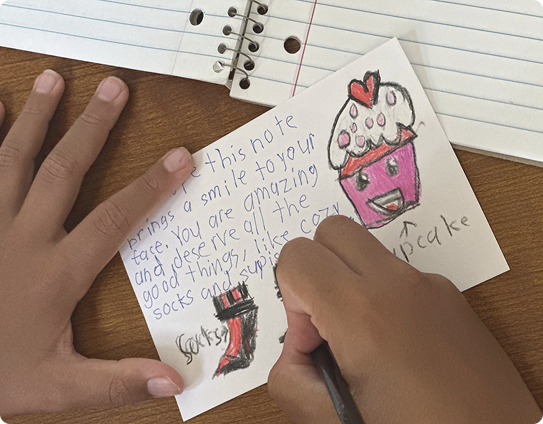 this note
brings a smile to your
face. You are amazing
and deserve all the
good things, like cozy
socks and
socks
cake